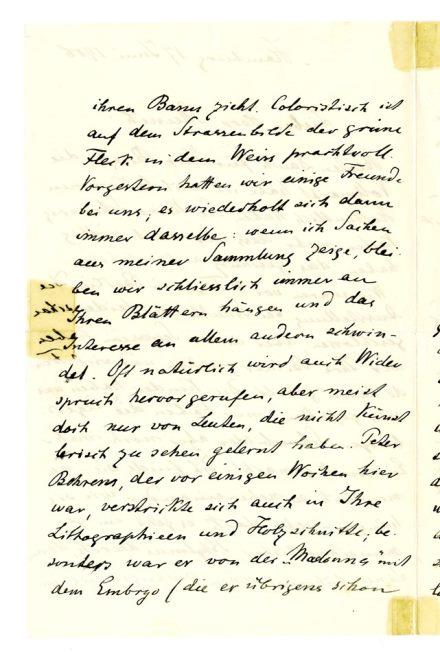 ihren Bann zieht. Coloristisch ist
auf dem Strassenbilde der grüne
Fleck in dem Weiss prachtvoll.
Vorgestern hatten wir einige Freunde
bei uns; es wiederholt sich dann
immer dasselbe: wenn ich Sachen
aus meiner Sammlung zeige, blei-
ben wir schliesslich immer an
Ihren Blättern hängen und das
Interesse an allem andern schwin-
det. Oft natürlich wird auch Wider
spruch hervorgerufen, aber meist
doch nur von Leuten, die nicht Künst
lerisch zu sehen gelernt haben. Peter
Behrens, der vor einigen Wochen hier
war, verstrickte sich auch in Ihre
Lithographieen und Holzschnitte; be-
sonders war er von der „Madonna" mit
dem Embryo (die er übrigens schon